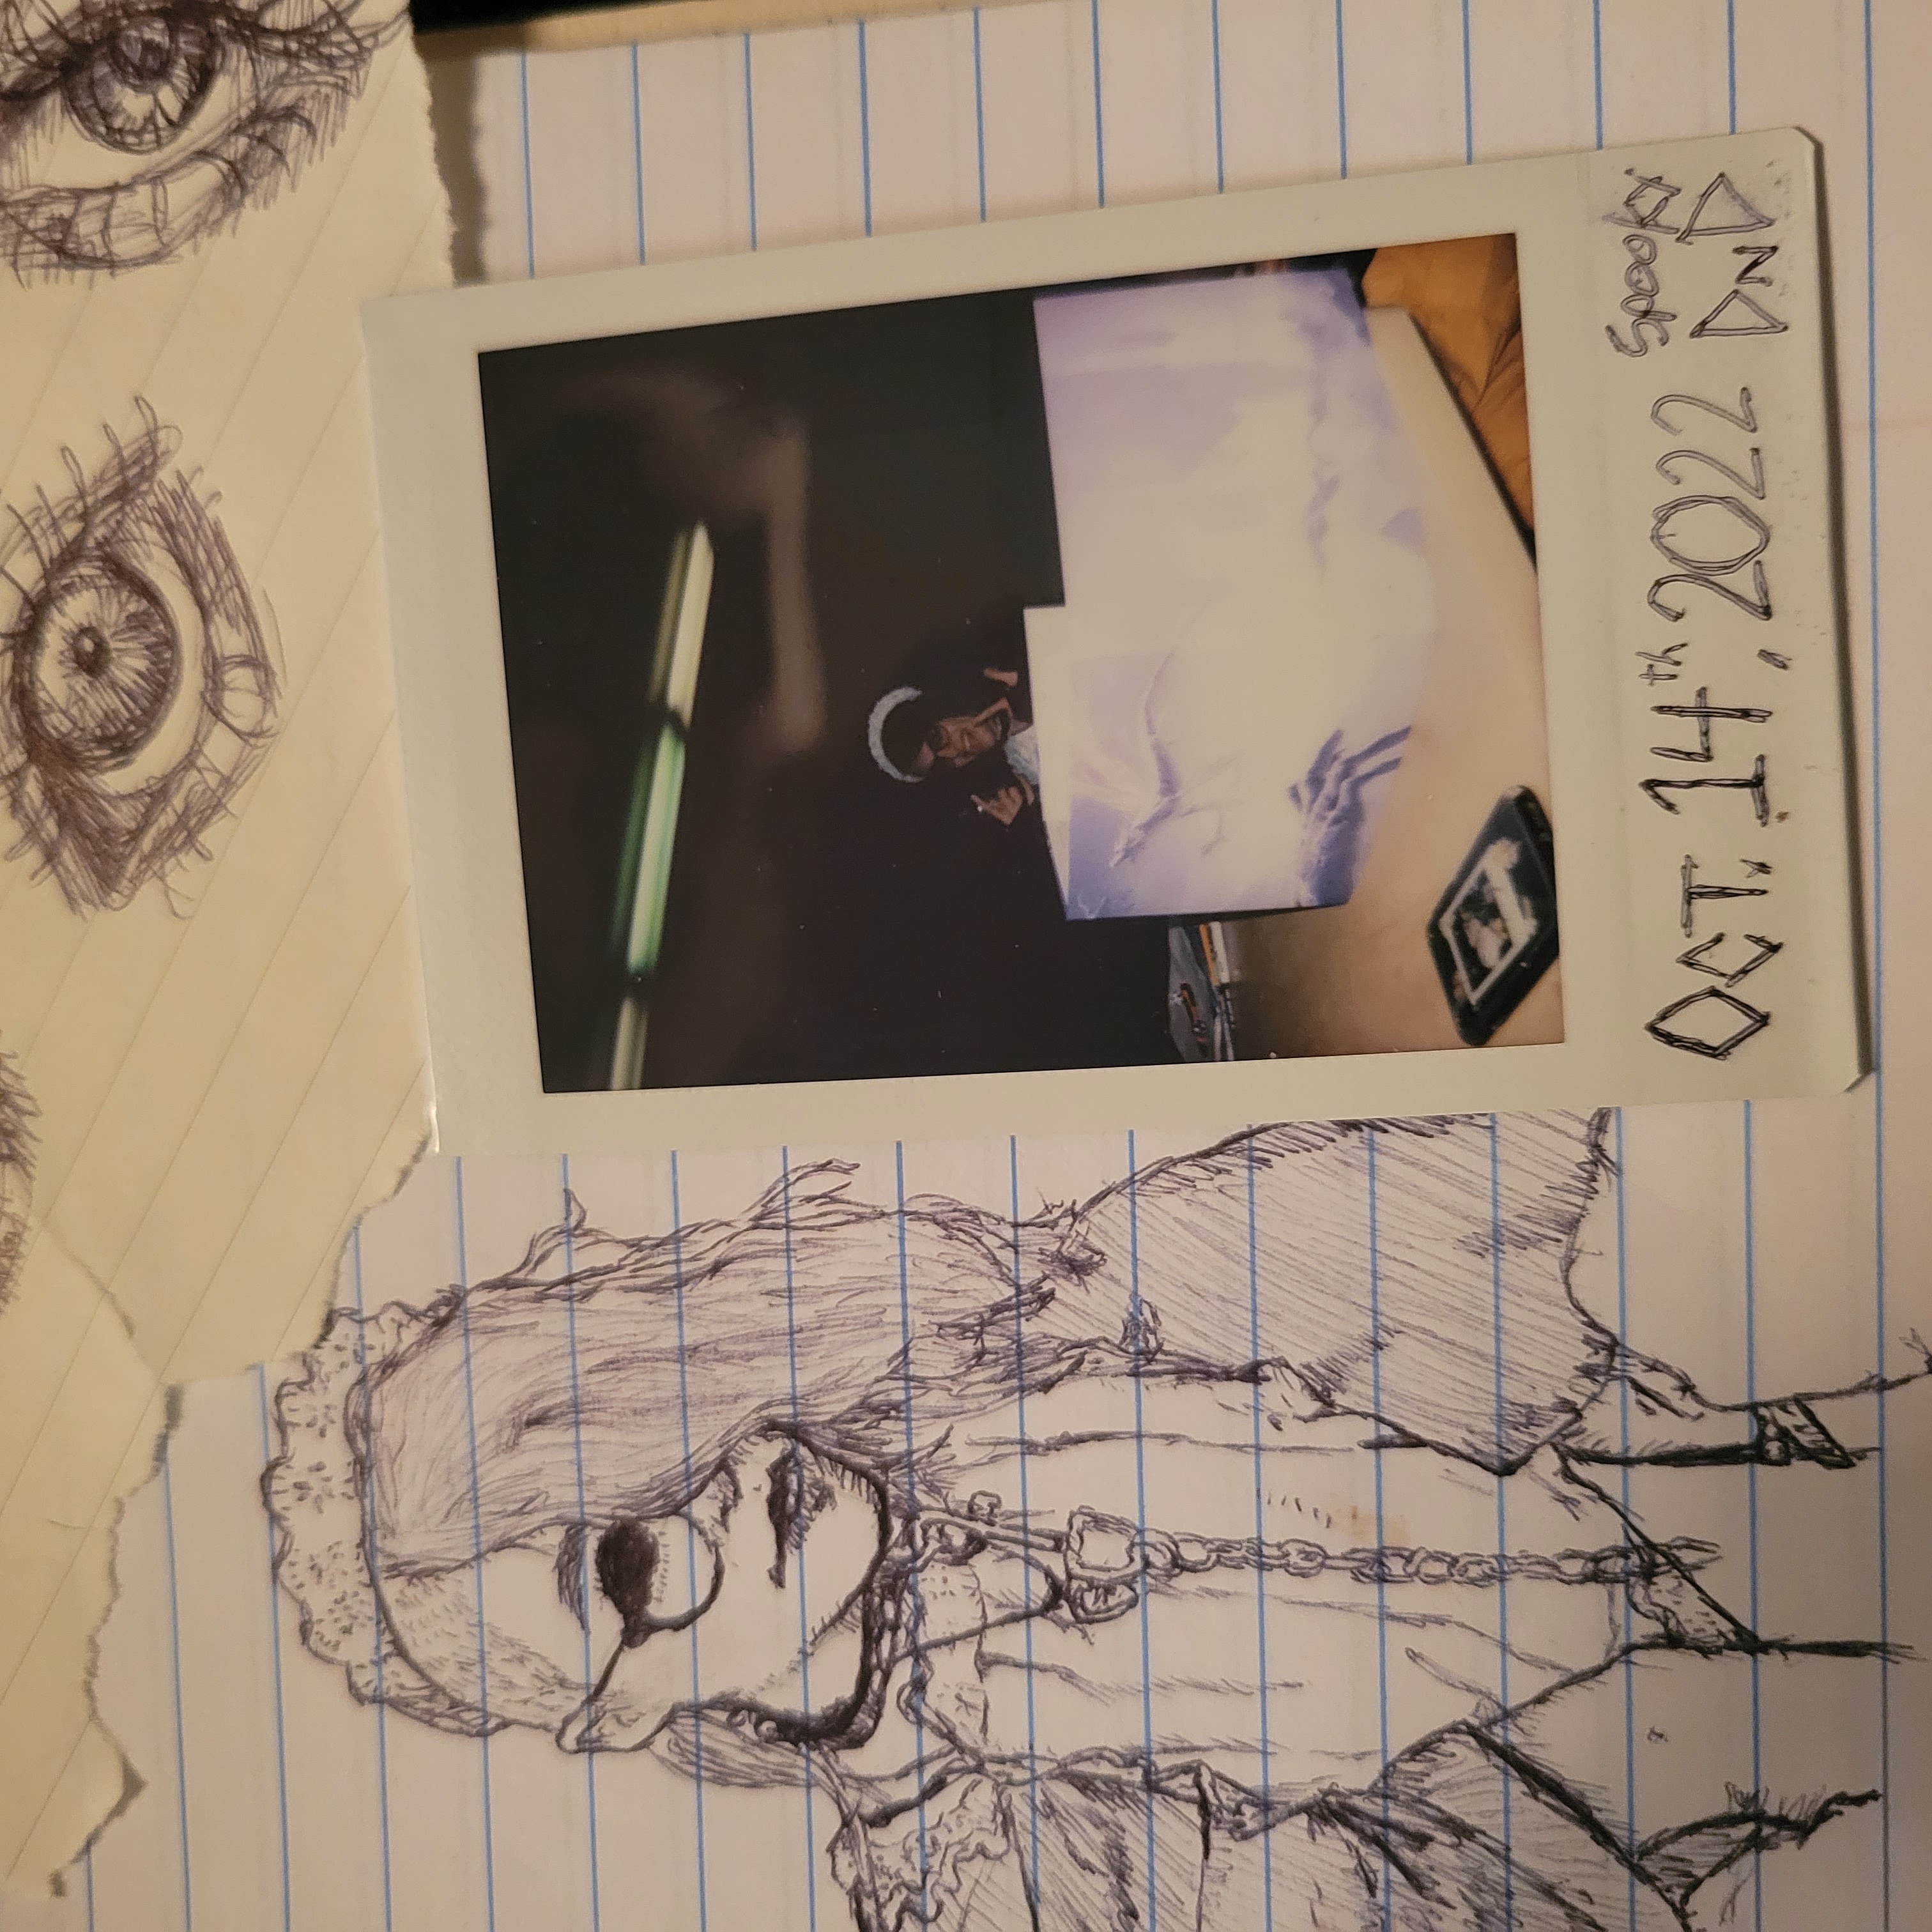 Oct. 14th, 2022
Spooky
DnD